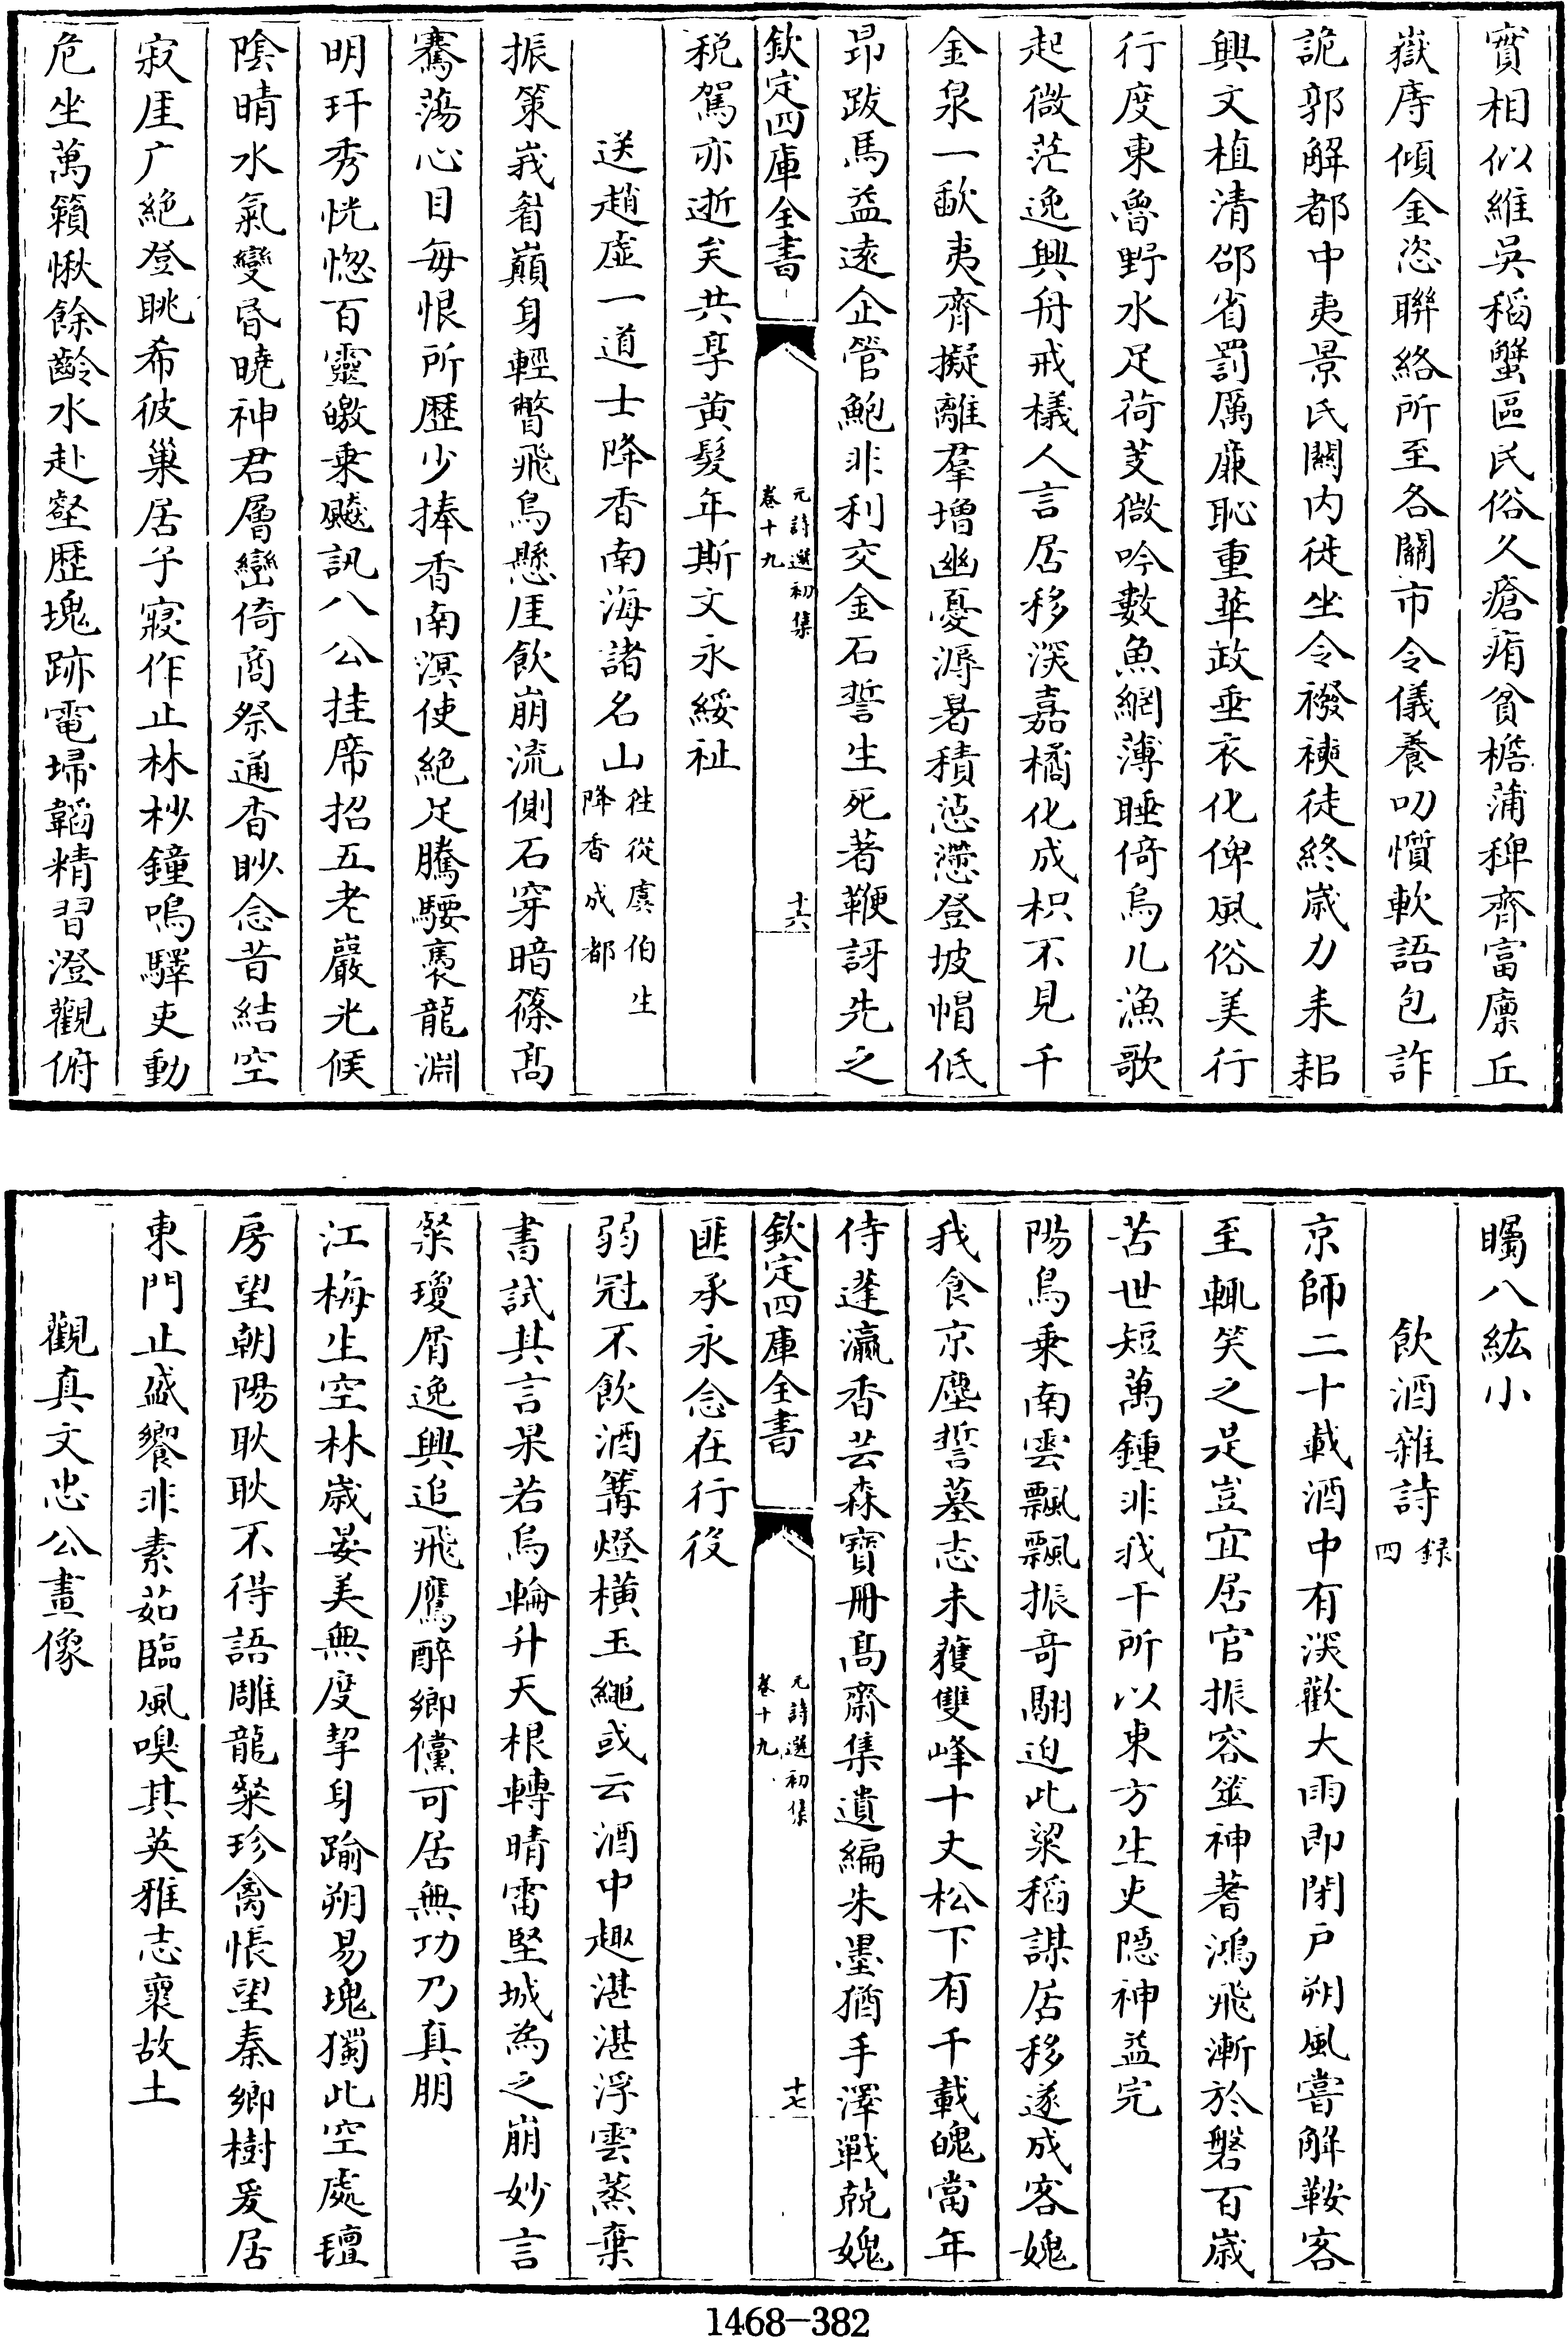 賔相似維吳稻蟹區民俗久瘡痏貧檐蒲稗齊富廪丘
嶽庤傾金恣聯絡所至各關市令儀養叨懫軟語包詐
詭郭解都中夷景氏關内徙坐令襏襫徒終歲力耒耜
興文植清邵省罰厲廉恥重華政垂衣化俾風俗美行
行度東魯野水足荷芰微吟數魚網薄睡倚烏几漁歌
起微茫逸興舟戒檥人言居移深嘉橘化成枳不見千
金泉一歃夷齊擬離羣增幽憂溽暑積惉懘登坡帽低
昂跋馬益遠企管鮑非利交金石誓生死著鞭訝先之
欽定四庫全書
元詩選初集
卷十九
十六
税駕亦逝矣共享黄髮年斯文永綏祉
送趙虚一道士降香南海諸名山
徃從虞伯生
降香成都
振策峩嵋巔身輕瞥飛鳥懸厓飲崩流側石穿暗篠高
騫蕩心目每恨所歴少捧香南溟使絶足騰騕褭龍淵
明玕秀恍惚百靈皦乘飈訊八公挂席招五老巖光候
陰晴水氣變昬曉神君層巒倚商祭通香眇念昔結空
寂厓广絶登眺希彼巢居子寢作止林杪鐘鳴驛吏動
危坐萬籟愀餘齡水赴壑歴塊跡電埽韜精習澄觀俯
矚八紘小
飲酒雜詩
録
四
京師二十載酒中有深歡大雨即閉户朔風嘗解鞍客
至輒笑之是豈宜居官振容筮神蓍鴻飛漸於磐百歲
苦世短萬鍾非我干所以東方生吏隠神益完
陽烏乗南雲飄飄振竒翮迫此粱稻謀居移遂成客媿
我食京塵誓墓志未獲雙峰十丈松下有千載魄當年
侍蓬瀛香芸森寳冊髙齋集遺編朱墨猶手澤戰兢媿
欽定四庫全書
元詩選初集
卷十九
十七
匪承永念在行役
弱冠不飲酒篝燈横玉繩或云酒中趣湛湛浮雲蒸棄
書試其言果若烏輪升天根轉晴雷堅城為之崩妙言
粲瓊屑逸興追飛鷹醉鄉儻可居無功乃真朋
江梅生空林歲晏美無度挈身踰朔易塊獨此空處璮
房望朝陽耿耿不得語雕龍粲珍禽悵望秦鄉樹爰居
東門止盛饗非素茹臨風嗅其英雅志褱故土
觀真文忠公畫像
1468-382